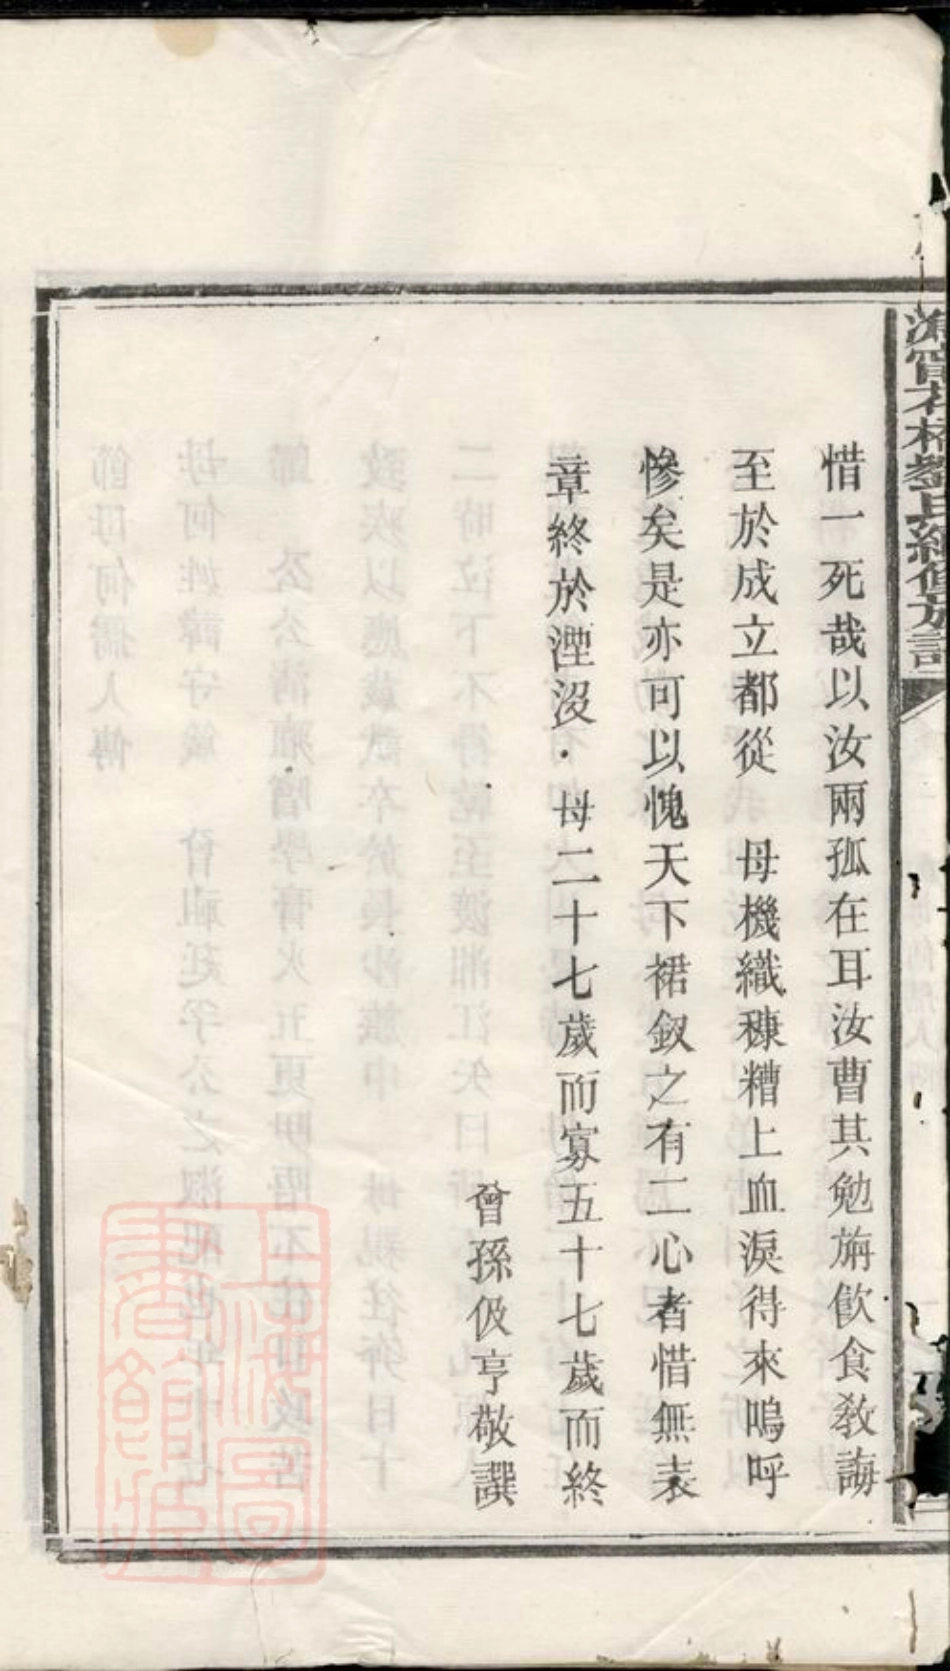 惜一死哉以汝兩孤在耳汝曹其勉旃飲食教誨
至於成立都從 母機織穅糟上血淚得來嗚呼
慘矣是亦可以愧天下裙釵之有二心者惜無表
章終於湮沒 母二十七歲而寡五十七歲而終
曾孫伋亨敬譔
上海圖書館藏